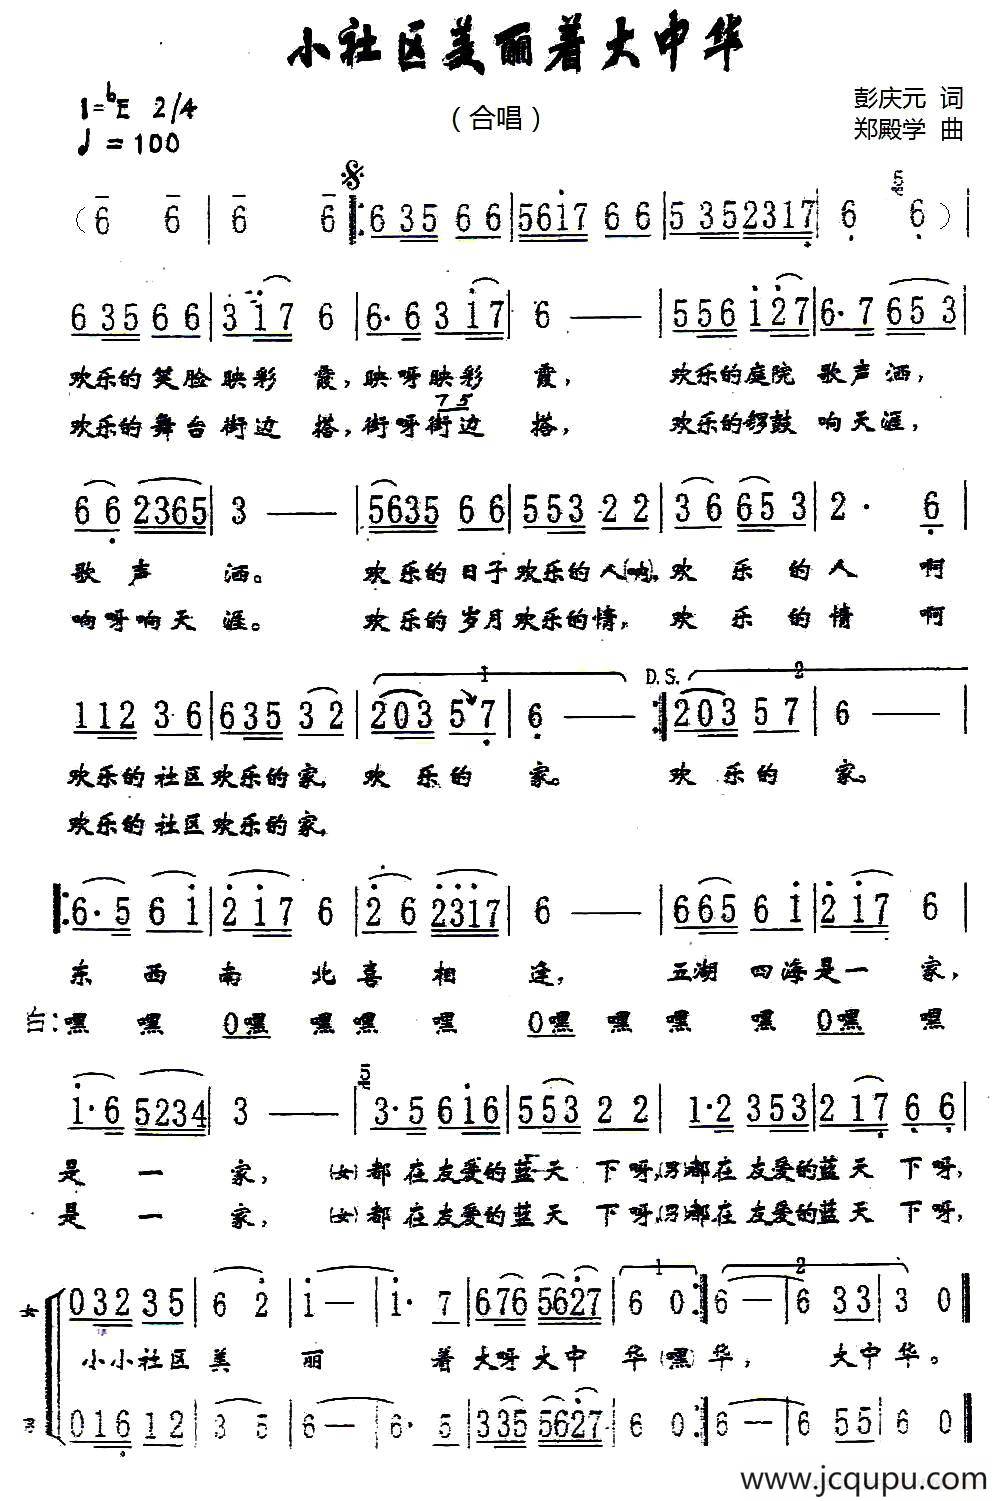 小社区美丽着大中华
1=♭E 2/4
♩=100
（合唱）
彭庆元 词
郑殿学 曲
（6 6 | 6 6 ‖: 635 66 | 5617 66 | 5352317 | 6 6 ）|
63566 | 317 6 | 6·6 317 | 6 — | 556127 | 6·7 653 |
欢乐的笑脸映彩 霞，映呀映彩 霞， 欢乐的庭院 歌声洒，
75
欢乐的舞台街边 搭，街呀街边 搭， 欢乐的锣鼓 响天涯，
66 2365 | 3 — | 5635 66 | 553 22 | 36 653 | 2· 6 |
歌声 洒。 欢乐的日子欢乐的人(呐)，欢 乐 的人 啊
响呀响天 涯。 欢乐的岁月欢乐的情， 欢 乐 的情 啊
1 D.S. 2
112 36 | 635 32 | 203 57 | 6 — :‖ 203 57 | 6 — |
欢乐的社区欢乐的家， 欢 乐的 家。 欢 乐的 家。
欢乐的社区欢乐的家，
‖: 6·5 61 | 217 6 | 26 2317 | 6 — | 665 61 | 217 6 |
东 西 南 北喜 相 逢， 五湖 四海是一 家，
白：嘿 嘿 0嘿 嘿嘿 嘿 0嘿 嘿 嘿 嘿 0嘿 嘿
1·6 5234 | 3 — | 3·5 616 | 553 22 | 1·2 353 | 217 66 |
是 一 家， (女)都在友爱的蓝天 下呀，(男)都在友爱的蓝天 下呀，
是 一 家， (女)都在友爱的蓝天 下呀，(男)都在友爱的蓝天 下呀，
1 2
女 032 35 | 6 2 | 1 — | 1· 7 | 676 5627 | 6 0 :‖ 6 — | 6 33 | 3 0 ‖
小小社区 美 丽 着 大呀大中 华(嘿)华， 大中华。
男 016 12 | 3 5 | 6 — | 6· 5 | 335 5627 | 6 0 :‖ 6 — | 6 55 | 6 0 ‖
www.jcqupu.com